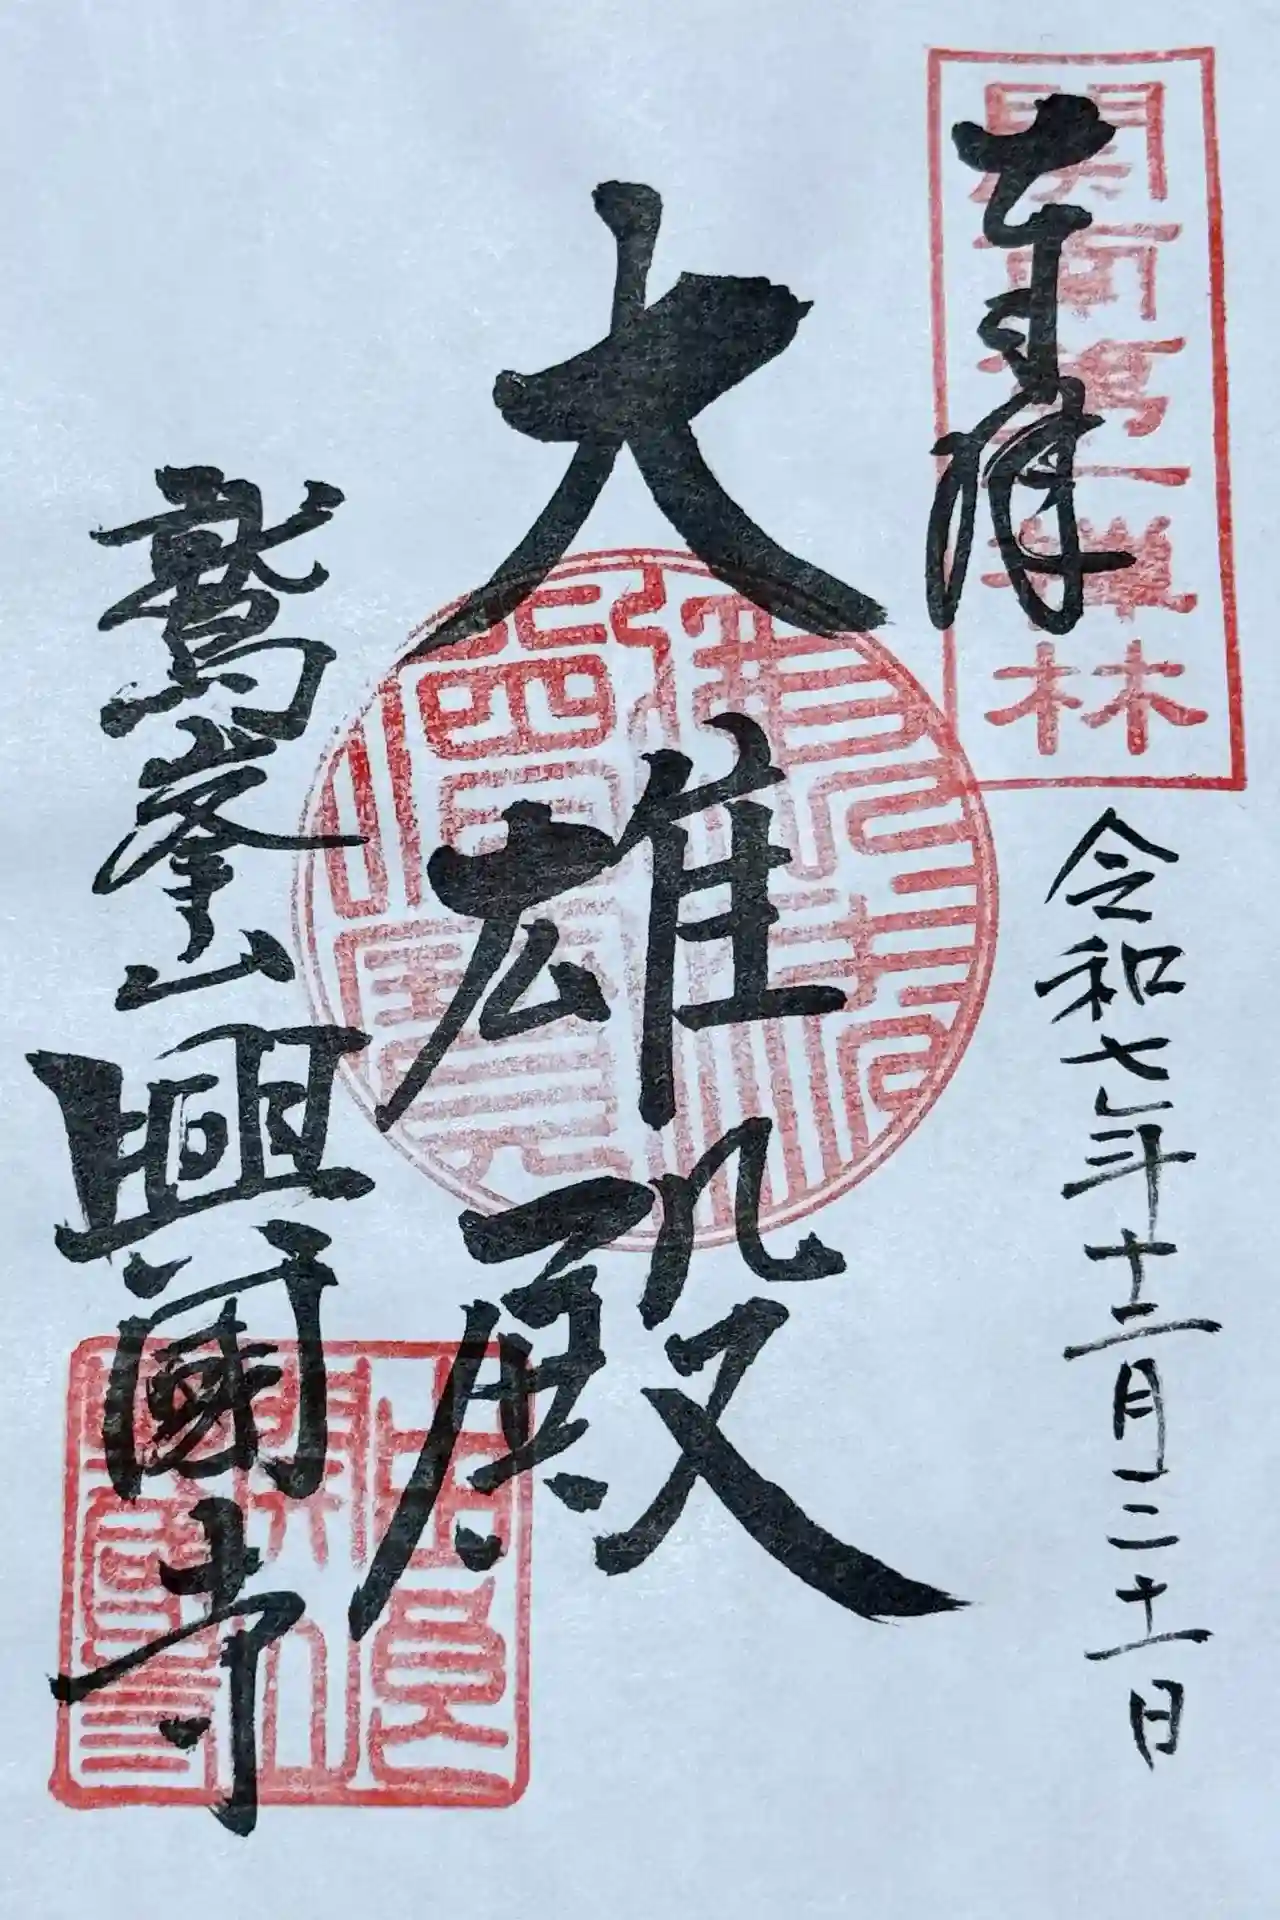 関南第一禅林
奉拝
令和七年十二月二十一日
大雄殿
鷲峯山興國寺